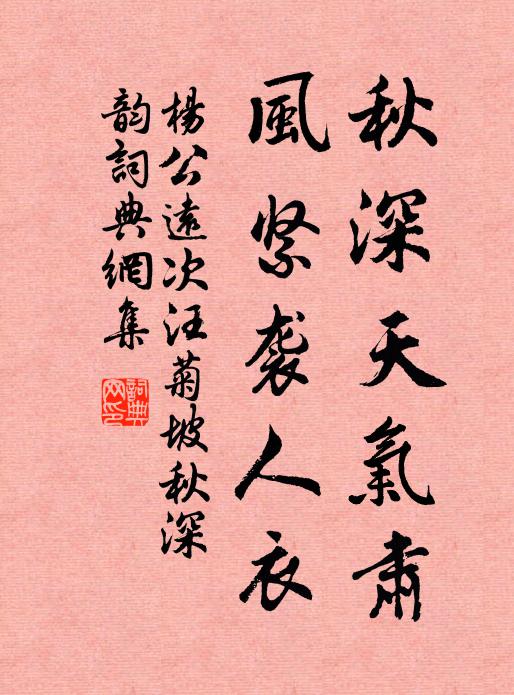 秋深天氣肅
風紧袭人衣
楊公遠次汪菊坡秋深
韵詞典網集
詞典网印